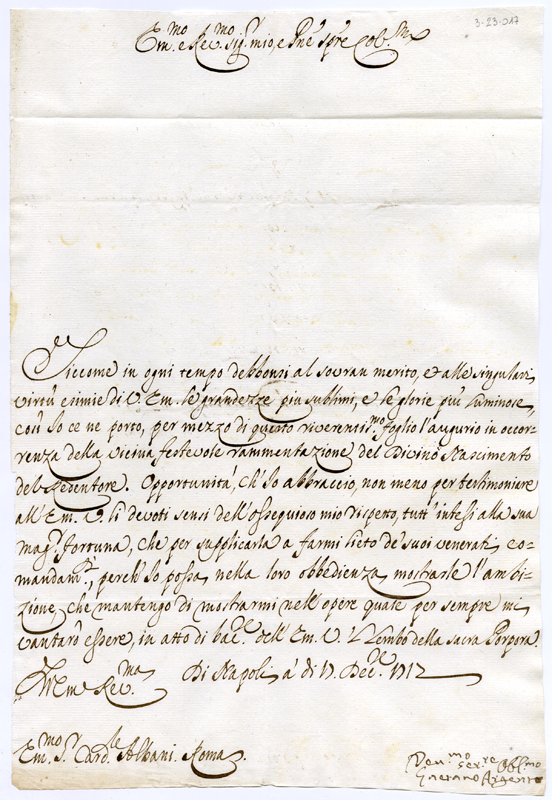 3-23-017
Em.mo e Rev.mo Sig.r mio, e Pne Sp̃re Cob.mo
Siccome in ogni tempo debbonsi al sovran merito, et alle singulari
virtù esimie di V Em. le grandezze più sublimi, e le glorie più luminose,
così Io ce ne porto, per mezzo di questo riverentis.mo foglio l'augurio in occor-
renza della vicina festevole rammentazione del Divino Nascimento
del Redentore. Opportunità, ch'Io abbraccio, non meno per testimoniare
all'Em. V. li devoti sensi dell'ossequioso mio rispetto, tutt'intesi alla sua
mag.r fortuna, che per supplicarla a farmi lieto de' suoi venerati co-
mandam.ti, perch'Io possa, nella loro obbedienza, mostrarle l'ambi-
zione, che mantengo di mostrarmi nell'opere quale per sempre mi
vantarò essere, in atto di bac.e dell'Em. V. il lembo della sacra Porpora.
Di V. Em. Rev.ma Di Napoli à di 17. Dec.e 1712
Em.mo S.r Card.le Albani. Roma.
Dev.mo ser.re Obl.mo
Gaetano Argento